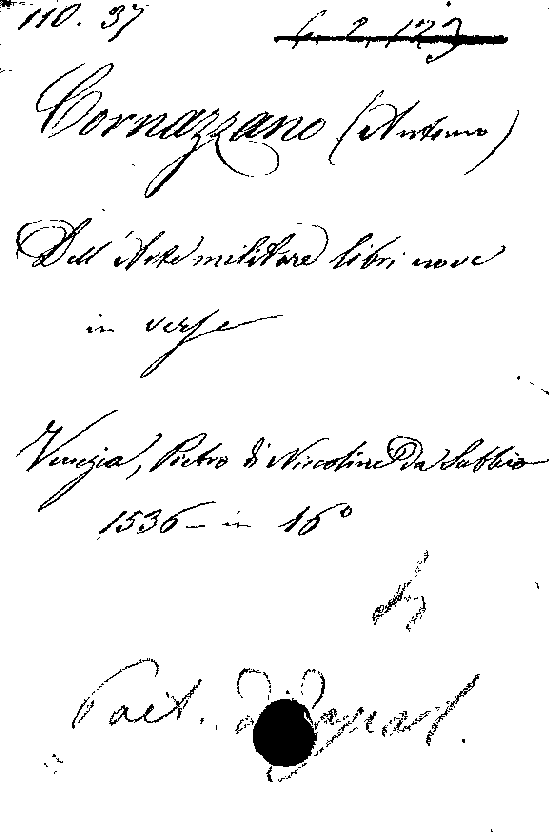 110. 37
6. 2. 123
Cornazzano (Antonio)
Dell'Arte militare libri nove
in verse
Venezia, Pietro di Niccolini Da Sabbio
1536 – in 16°
Poet.